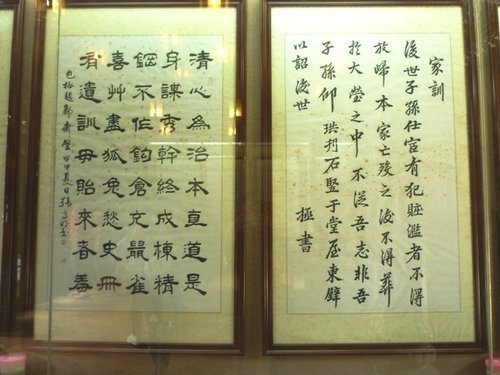 家訓
後世子孫仕宦有犯賍濫者不得
放歸本家亡殁之後不得葬
於大塋之中不從吾志非吾
子孫仰珙刊石竪于堂屋東壁
以詔後世 拯書
清心為治本直道是
身謀秀幹終成棟精
鋼不作鈎倉充鼠雀
喜艸盡狐兔愁史冊
有遺訓毋貽來者羞
包拯題郡齋壁甲申夏日